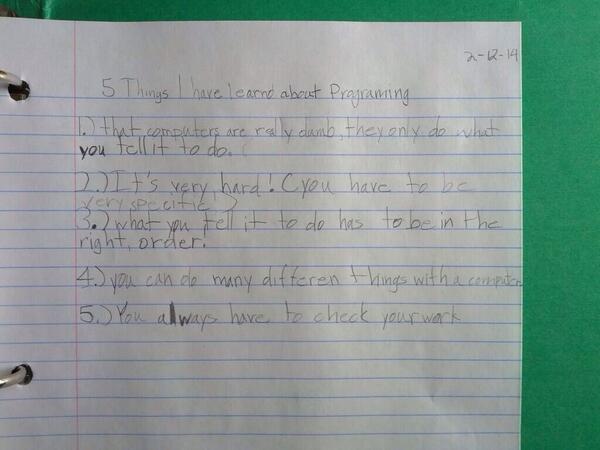 2-12-14
5 Things I have learnd about Programing
1.) that computers are really dumb, they only do what
you tell it to do.
2.) It's very hard! (you have to be
very specific)
3.) what you tell it to do has to be in the
right, order.
4.) you can do many differen things with a computer
5.) You always have to check your work